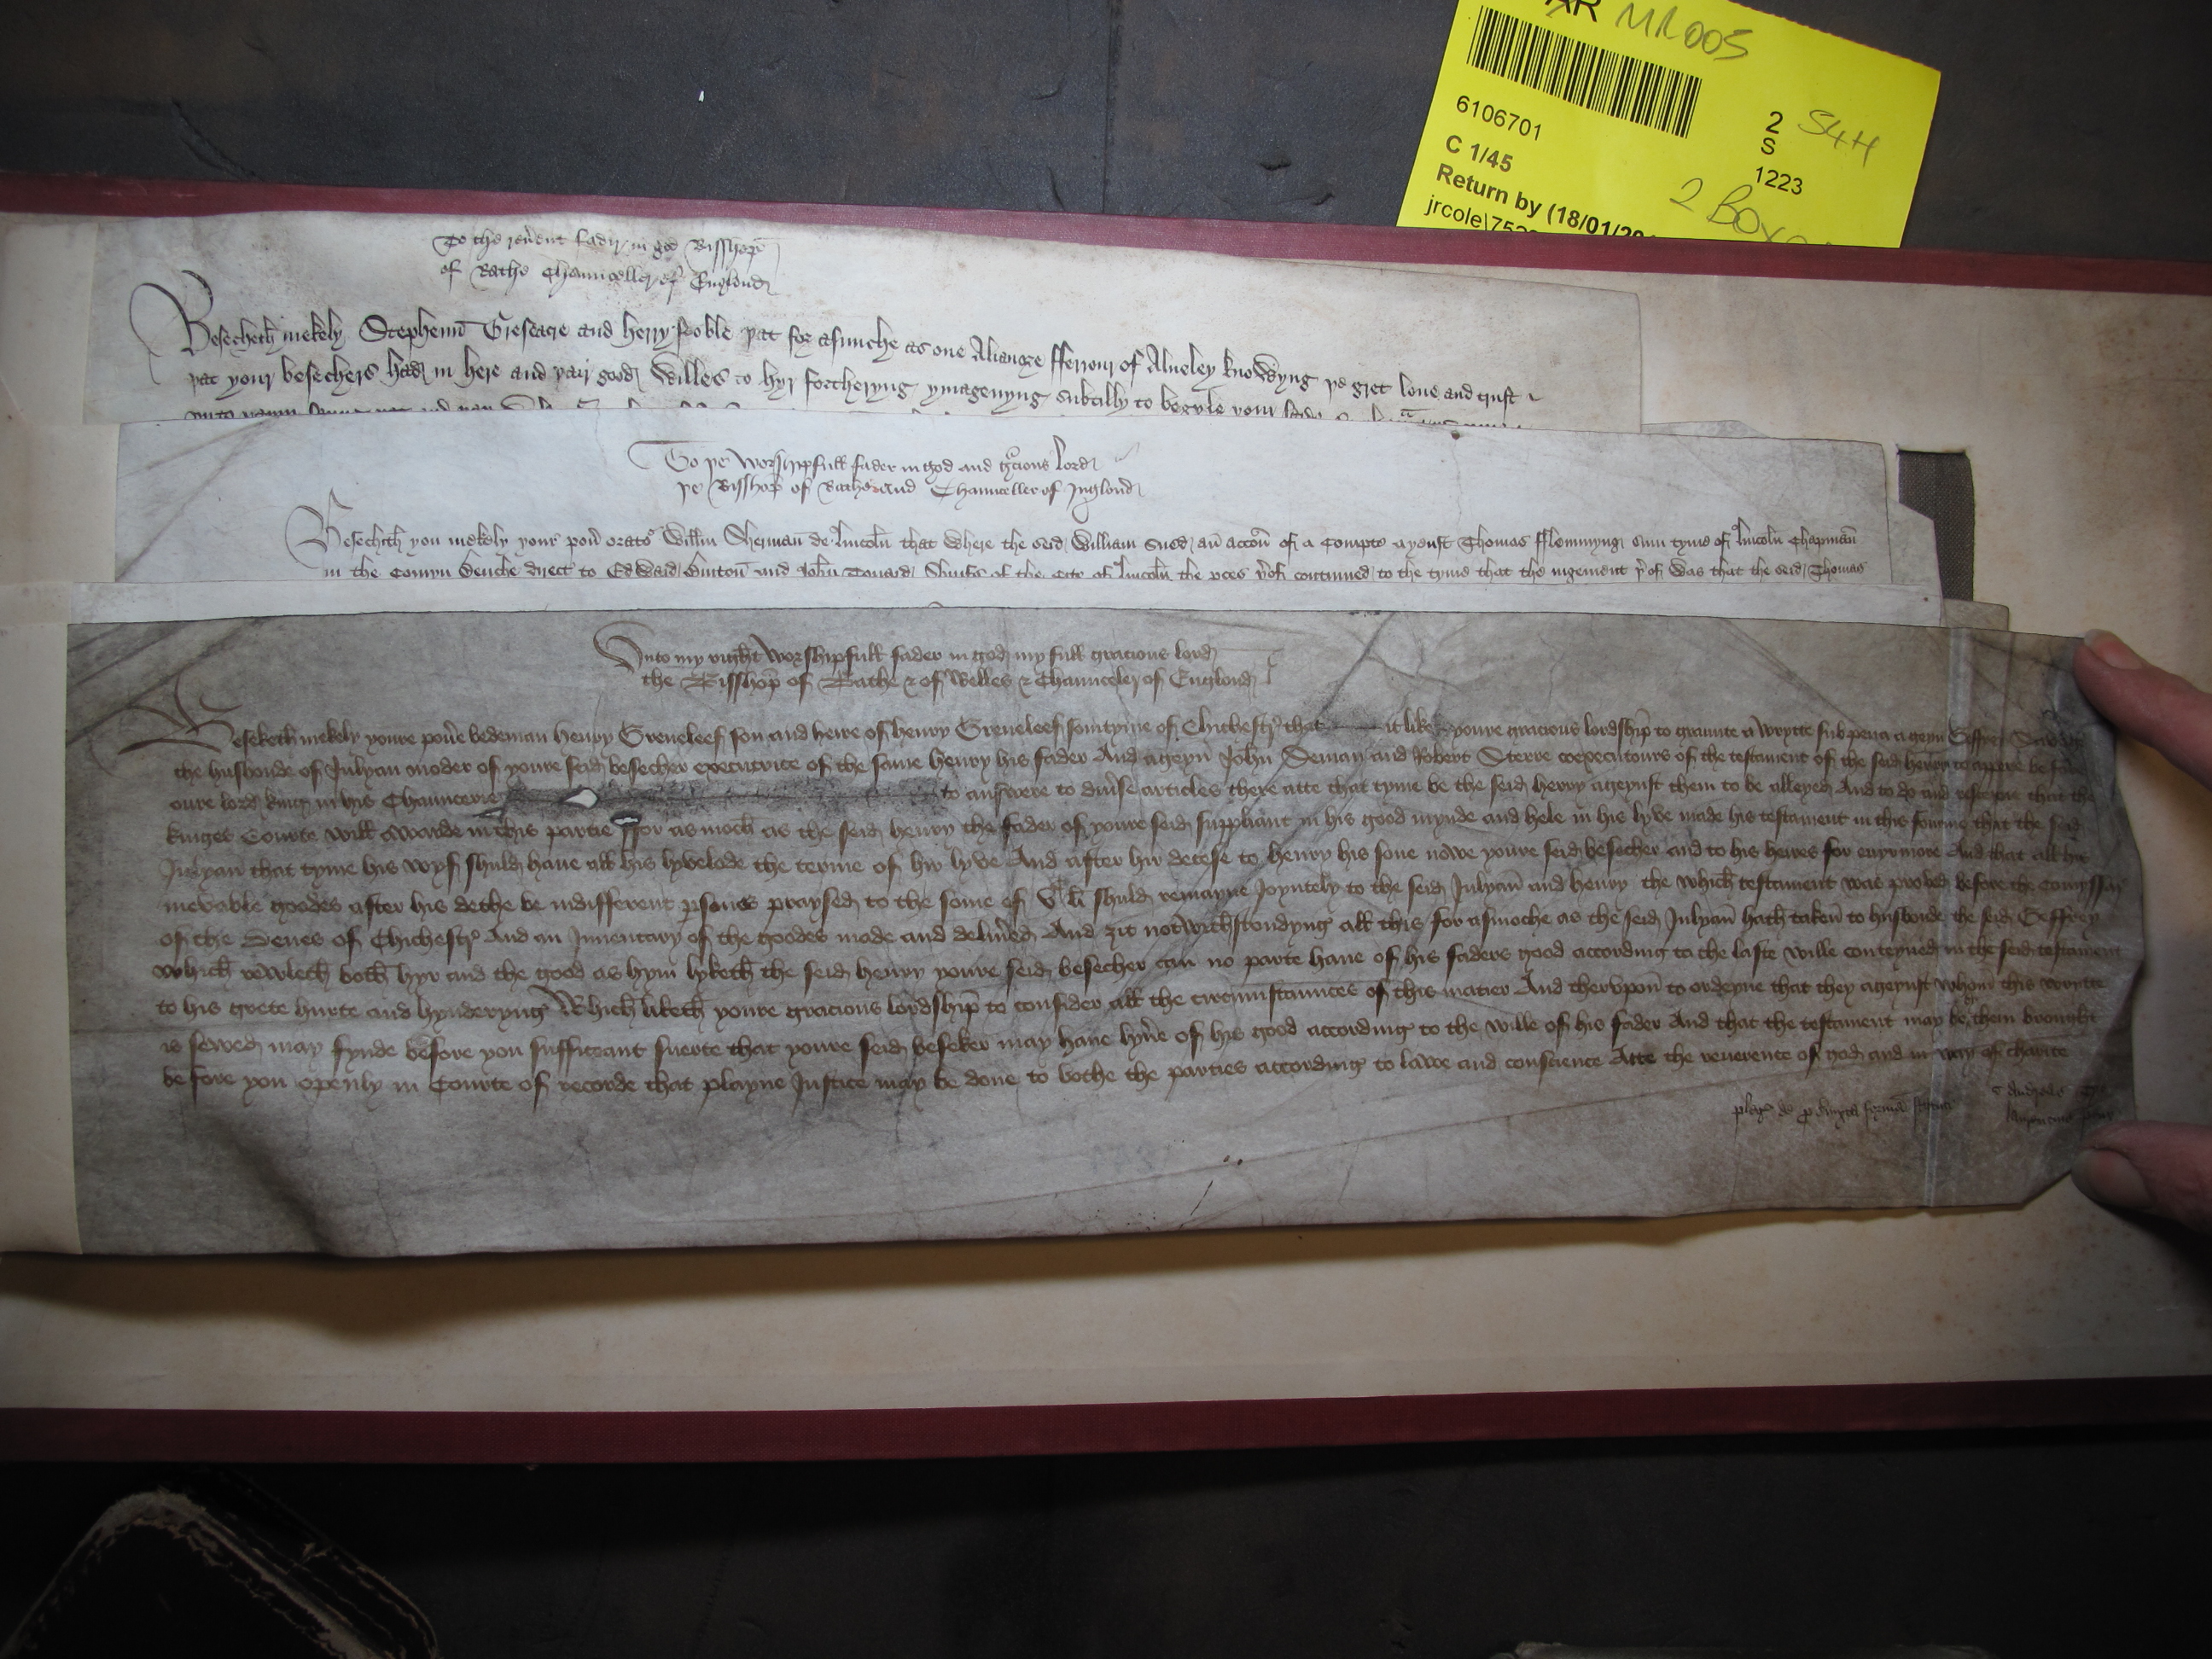 MR005
6106701
C 1/45
Return by (18/01/20
jrcole\752
2
S
1223
S44
2 Box
To the reu'ent fadir in god Bisshop
of Bathe Chaunceller of Englond
Besecheth mekely Stephenn Greseacre and herry foble þat for asmuche as one Aliangre fferrour of Alueley knowyng þe gret loue and trust
þat your besechers had in here and þair good willes to hyr fortheryng ymagenyng subtilly to begyle your
To þe worshipfull fader in god and gracious lord
þe Bisshop of Bathe and Chaunceller of Inglond
Besechith you mekely your pou' orator Willm Sherman de lincoln that where the seid William sued an accon of a Compte ayenst Thomas fflemmyng sum tyme of lincoln Chapman
in the Comyn benche direct to Edward and John the Cite of lincoln the p'ces þ'of contynued to the tyme that the iugement þ'of was that the seid Thomas
Unto my right worshipfull fader in god my full gracious lord
the Bisshop of Bathe & of Welles & Chaunceler of Englond
Beseketh mekely youre pou'e bedeman Henry Greneleef son and heire of henry Greneleef somtyme of Chichestr' that it like youre gracious lordship to graunte a wrytte subpena ageyn Geffrey
the husbonde of Julyan moder of youre seid besecher executrice of the same Henry his fader And ageyn John Deman and Robert Sterre coexecutours of the testament of the seid henry to apere before
oure lord king in his Chauncerie to answere to diu'se articles there atte that tyme be the seid herry ageynst them to be alleyed And to do and resceyve that the
kinges Courte will awarde in this partie ffor as moch as the seid henry the fader of youre seid suppliant in his good mynde and hele in his lyve made his testament in this fourme that the seid
Julyan that tyme his wyf shuld haue all his lyvelode the terme of hir lyve And after hir decese to henry his sone nowe youre seid besecher and to his heires for euyrmore And that all his
mevable goodes after his dethe be indifferent p'sones praysed to the some of li shuld remayne Joyntely to the seid Julyan and henry the which testament was proved before the Comissar
of the Denes of Chichestr' And an Inuentary of the goodes made and delyu'ed And zit notwithstondyng all this for asmoche as the seid Julyan hath taken to husbonde the seid Geffrey
which rewleth both hyr and the good as hym lyketh the seid henry youre seid besecher can no parte haue of his faders good according to the laste wille conteyned in the seid testament
to his grete hurte and hynderyng Which liketh youre gracious lordship to consider all the circumstaunces of this matier And thervpon to ordeyne that they ageynst whom this wrytte
is sewed may fynde before you sufficeant suerte that youre seid beseker may haue lyu'e of his good according to the wille of his fader And that the testament may be by them brought
before you openly in Courte of recorde that playne Justice may be done to bothe the parties according to lawe and conscience Atte the reuerence of god and in way of charite
pleg' de